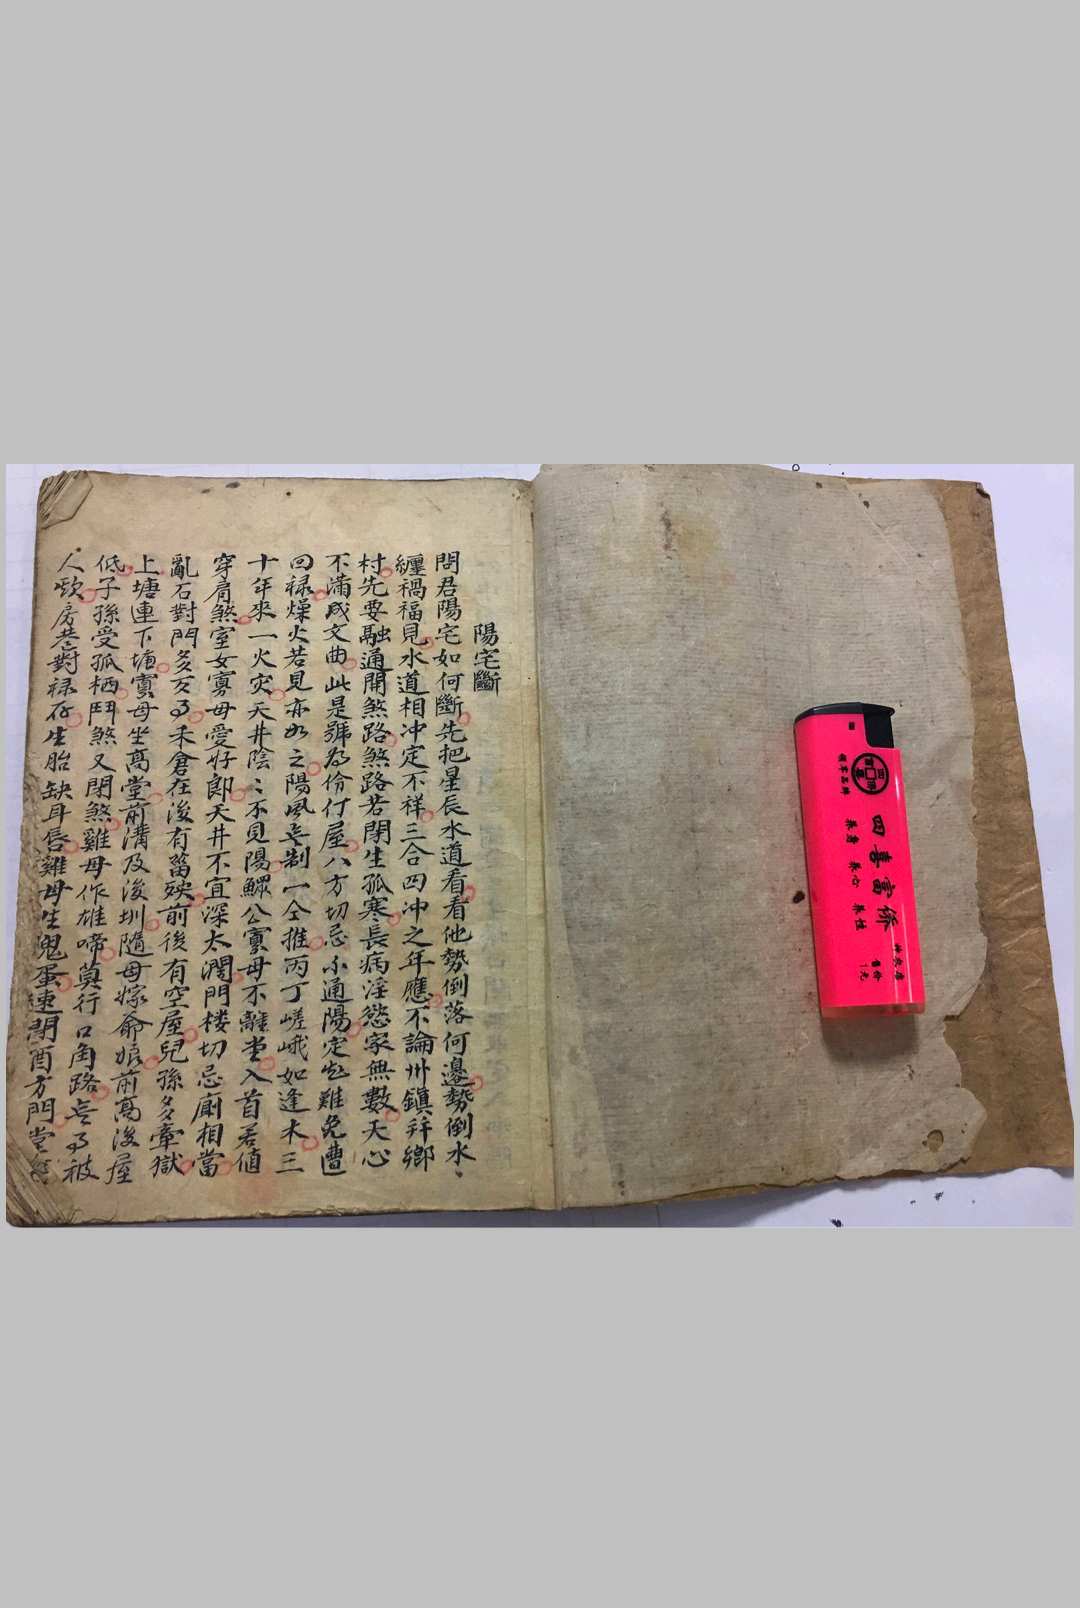 陽宅斷
問君陽宅如何斷先把星辰水道看看他勢倒落何邊勢倒水
纒禍福見水道相冲定不祥三合四冲之年應不論州鎮并鄉
村先要融通開煞路煞路若閉生孤寒長病淫慾家無數天心
不滿成文曲此是號為伶仃屋八方切忌不通陽定知難免遭
回禄燥火若見亦如之陽風無制一仝推丙丁嵯峨如逢木三
十年來一火灾天井陰〻不見陽鰥公寡母不離堂入首若值
穿肩煞室女寡母愛好郎天井不宜深太濶門楼切忌廁相當
亂石對門多歹事禾倉在後有菑殃前後有空屋兒孫多牽獄
上塘連下塘寡母坐高堂前溝及後圳隨母嫁爺娘前高後屋
低子孫受孤栖鬥煞又閉煞雞母作雄啼莫行口角路無事被
人欺房巷對禄存生胎缺耳唇雞母生鬼蛋速閉酉方門堂
四喜富侨
养身 养心 养性
售价
1元